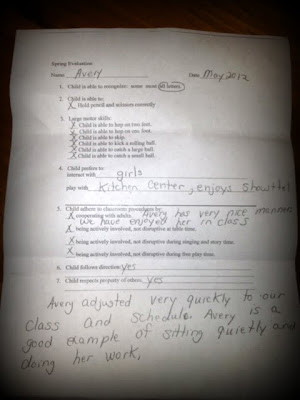 Spring Evaluation:
Name Avery Date May 2012
1. Child is able to recognize: some most all letters
2. Child is able to:
X Hold pencil and scissors correctly
3. Large motor skills:
X Child is able to hop on two feet.
X Child is able to hop on one foot.
X Child is able to skip.
X Child is able to kick a rolling ball.
X Child is able to catch a large ball.
X Child is able to catch a small ball.
4. Child prefers to:
interact with girls
play with Kitchen Center, enjoys
5. Child adheres to classroom procedures by:
X cooperating with adults. Avery has very nice manners
We have enjoyed her in class
X being actively involved, not disruptive at table time.
X being actively involved, not disruptive during singing and story time.
X being actively involved, not disruptive during free play time.
6. Child follows direction: yes
7. Child respects property of others. yes
Avery adjusted very quickly to our
class and schedule. Avery is a
good example of sitting quietly and
doing her work,